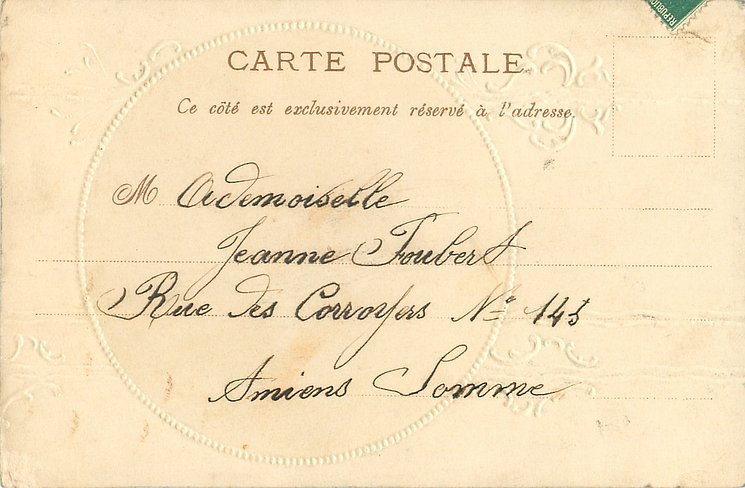 RÉPUBLIQUE
CARTE POSTALE
Ce côté est exclusivement réservé à l'adresse.
M Ademoiselle
Jeanne Foubert
Rue des Corroyers No 145
Amiens Somme